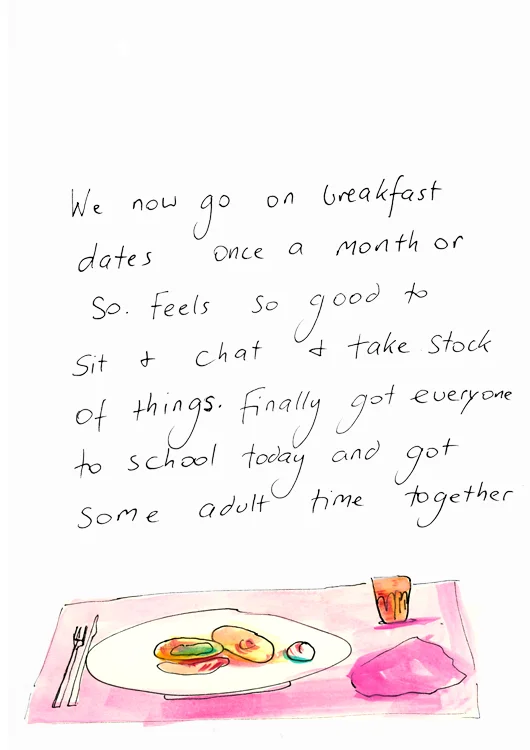 We now go on breakfast
dates once a month or
So. Feels so good to
Sit & chat & take stock
of things. Finally got everyone
to school today and got
some adult time together